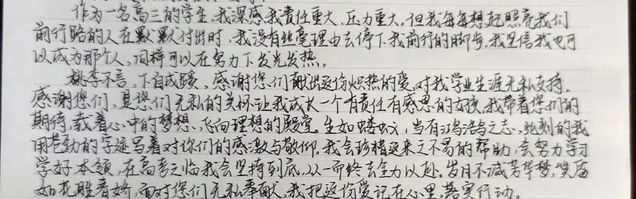 作为一名高三的学生,我深感我责任重大、压力重大。但我每每想起照亮我们
前行路的人在默默付出时,我没有丝毫理由去停下我前行的脚步,我坚信我也可
以成为那个人,同样可以在努力下发光发热。
桃李不言,下自成蹊、感谢您们献出这份炽热的爱,对我学业生涯无私支持。
感谢您们,是您们无私的关怀让我成长一个有责任有感恩的女孩,我带着您们的
期待,载着心中的梦想,飞向理想的殿堂。生如蝼蚁,当有鸿鹄之志,此刻的我
用苍劲的字迹写着对你们的感激与敬仰,我会珍惜迎来之不易的帮助,会努力学习
学好本领,在高考之临我会坚持到底,从一而终去全力以赴。岁月不减芳华梦,笑
如花胜看娇,面对您们无私奉献,我把这份爱记在心里,落实行动。